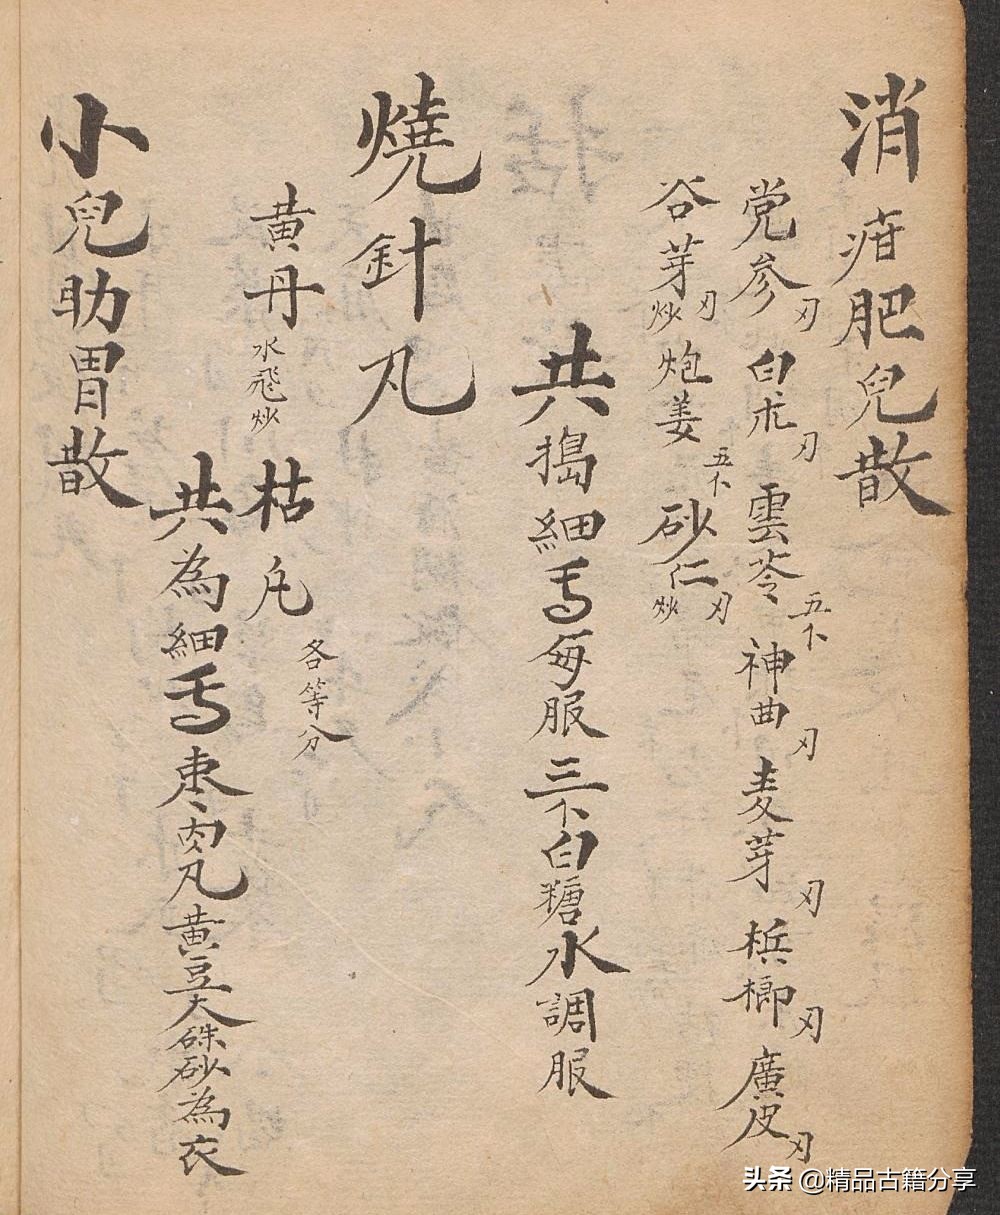 消疳肥兒散
党参刃 白朮刃 雲苓五下 神曲刃 麦芽刃 梹榔刃 廣皮刃
谷芽炒刃 炮姜五下 砂仁炒刃
共搗細丐每服三下白糖水調服
燒針凡
黄丹水飛炒 枯凡各等分
共為細丐枣肉凡黄豆大硃砂為衣
小兒助胃散
头条 @精品古籍分享